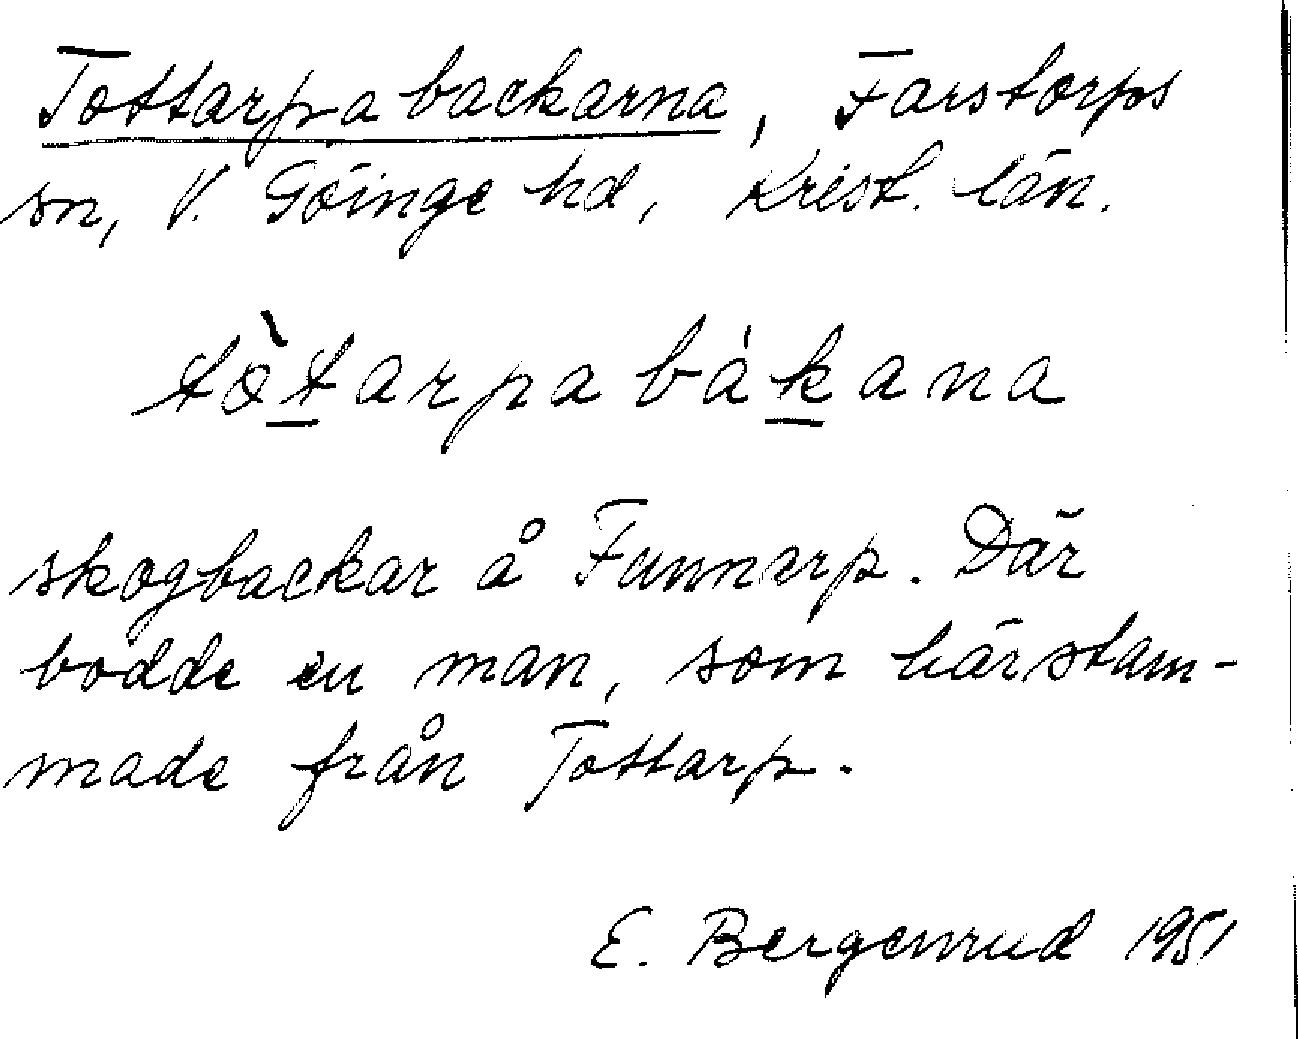 Tottarpabackarna, Farstorps
sn, V. Göinge hd, Krist. län.
tòt̲arpabák̲ana
skogbackar å Funnarp. Där
bodde en man, som härstam-
made från Tottarp.
E. Bergenrud 1951